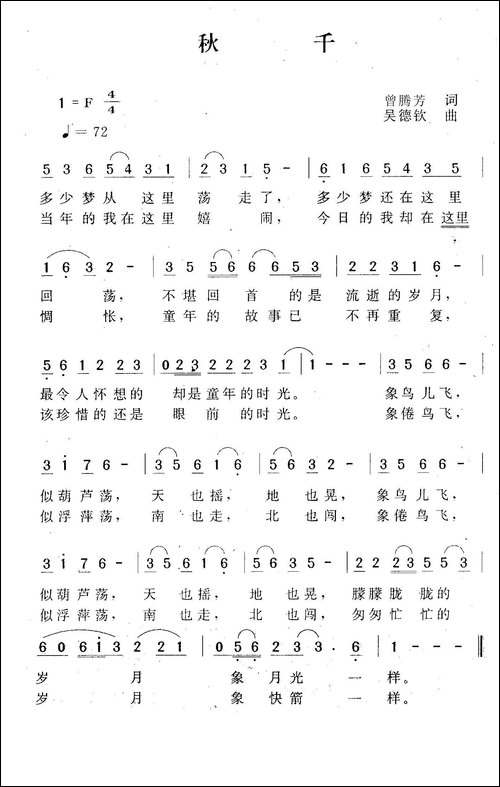 秋 千
1 = F 4/4
曾腾芳 词
♩= 72
吴德钦 曲
5 3 6 5 4 3 1 | 2 3 1 5 - | 6 1 6 5 4 3 5 |
多少梦从 这里 荡 走了, 多少梦还在这里
当年的我在这里 嬉 闹, 今日的我却在这里
1 6 3 2 - | 3 5 5 6 6 6 5 3 | 2 2 3 1 6 - |
回 荡, 不堪回 首 的是 流逝的岁月,
惆 怅, 童年的 故事已 不再重复,
5 6 1 1 2 2 3 | 0 2 2 3 2 2 2 3 1 | 1 - - - | 3 5 6 6 - |
最令人怀想的 却是童年的时光。 象鸟儿飞,
该珍惜的还是 眼前的时光。 象倦鸟飞,
3 1 7 6 - | 3 5 6 1 6 - | 5 6 3 2 - | 3 5 6 6 - |
似葫芦荡, 天也摇, 地也晃, 象鸟儿飞,
似浮萍荡, 南也走, 北也闯, 象倦鸟飞,
3 1 7 6 - | 3 5 6 1 6 - | 5 6 3 2 - | 2 2 2 3 5 3 |
似葫芦荡, 天也摇, 地也晃, 朦朦胧胧的
似浮萍荡, 南也走, 北也闯, 匆匆忙忙的
6 0 6 1 3 2 2 1 | 0 5 6 2 3 3 . 6 | 1 - - - ‖
岁 月 象月光 一 样。
岁 月 象快箭 一 样。